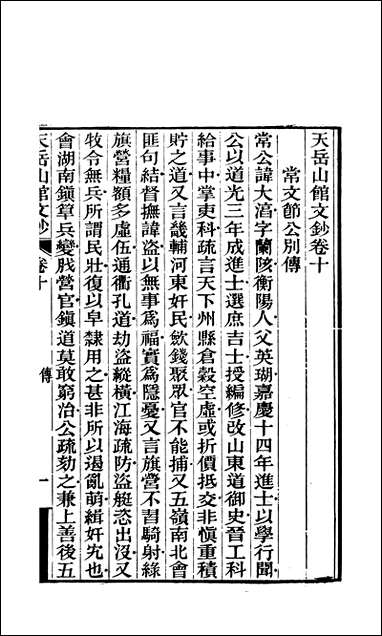 天岳山館文鈔卷十
常文節公別傳
常公諱大淯字蘭陔衡陽人父英瑚嘉慶十四年進士以學行聞
公以道光三年成進士選庶吉士授編修改山東道御史晉工科
給事中掌吏科疏言天下州縣倉穀空虛或折價抵交非慎重積
貯之道又言畿輔河東奸民歛錢聚眾官不能捕又五嶺南北會
匪句結督撫諱盜以無事為福實為隱憂又言旗營不習騎射綠
旗營糧額多虛伍通衢孔道劫盜縱橫江海疏防盜艇恣出沒又
牧令無兵所謂民壯復以皁隸用之甚非所以遏亂萌緝奸宄也
會湖南鎮草兵變戕營官鎮道莫敢窮治公疏劾之兼上善後五
天岳山館文鈔
卷十
傳
一